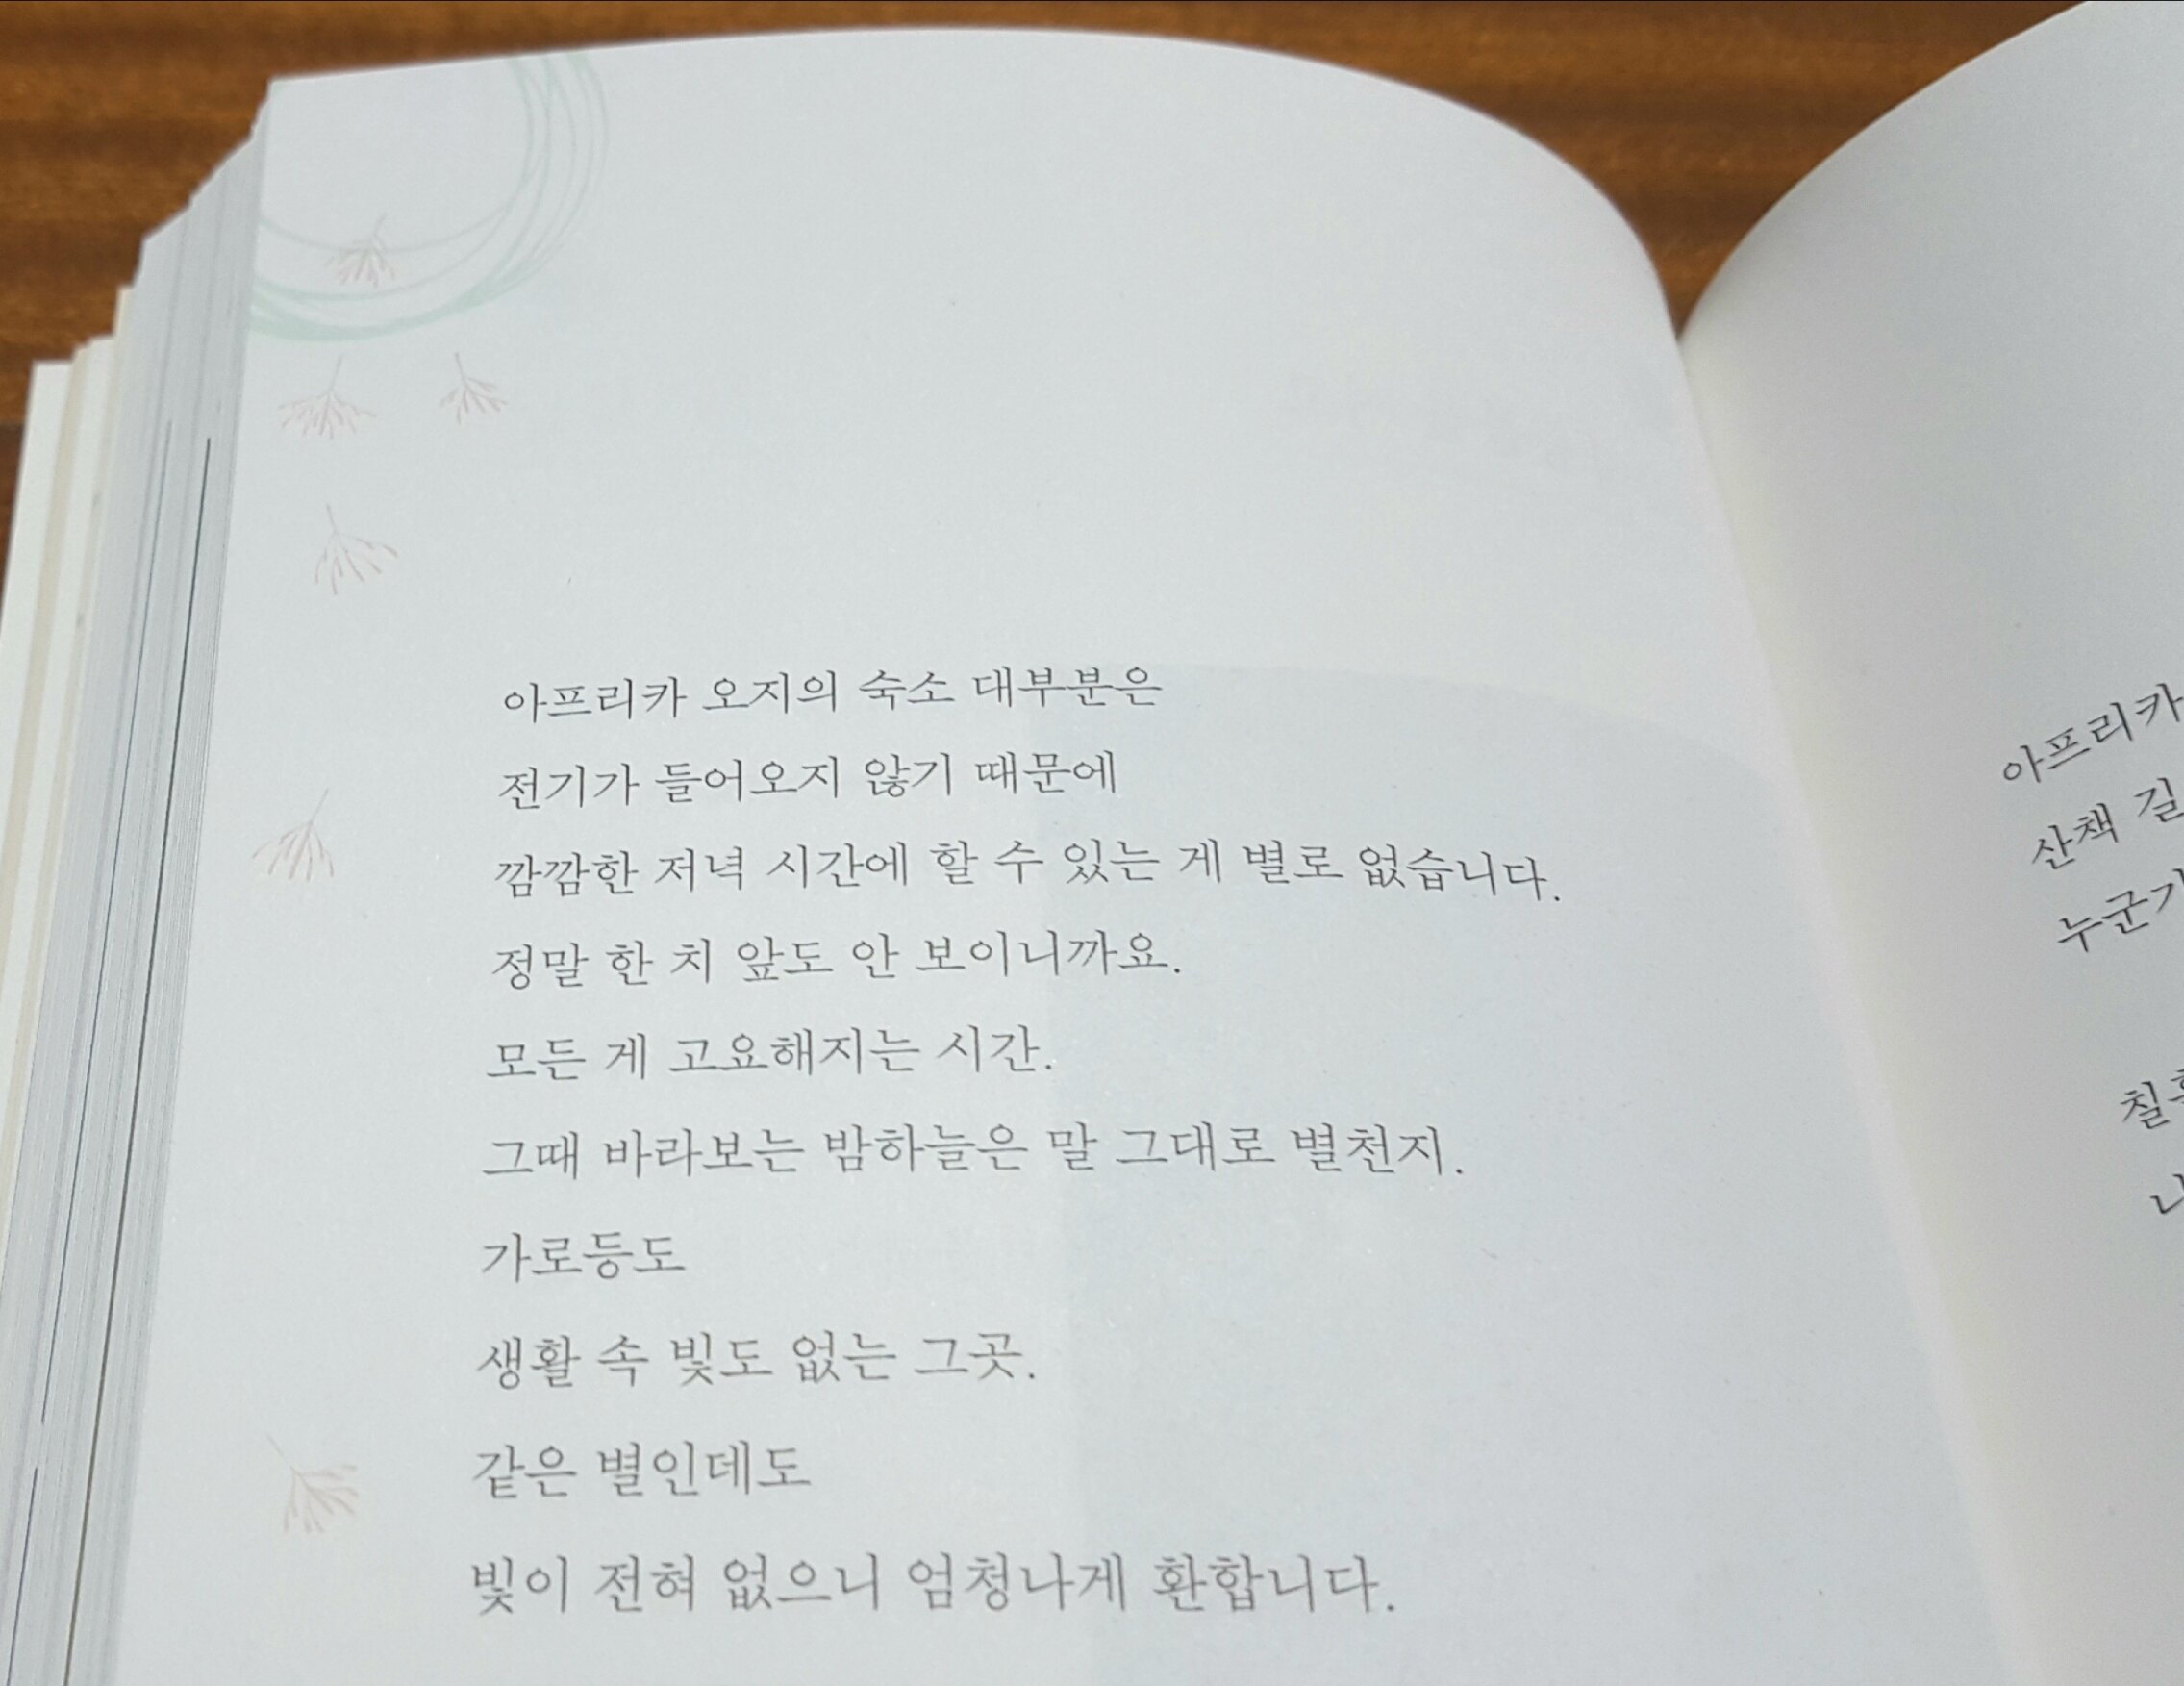 아프리카 오지의 숙소 대부분은
전기가 들어오지 않기 때문에
깜깜한 저녁 시간에 할 수 있는 게 별로 없습니다.
정말 한 치 앞도 안 보이니까요.
모든 게 고요해지는 시간.
그때 바라보는 밤하늘은 말 그대로 별천지.
가로등도
생활 속 빛도 없는 그곳.
같은 별인데도
빛이 전혀 없으니 엄청나게 환합니다.
아프리카
산책 길